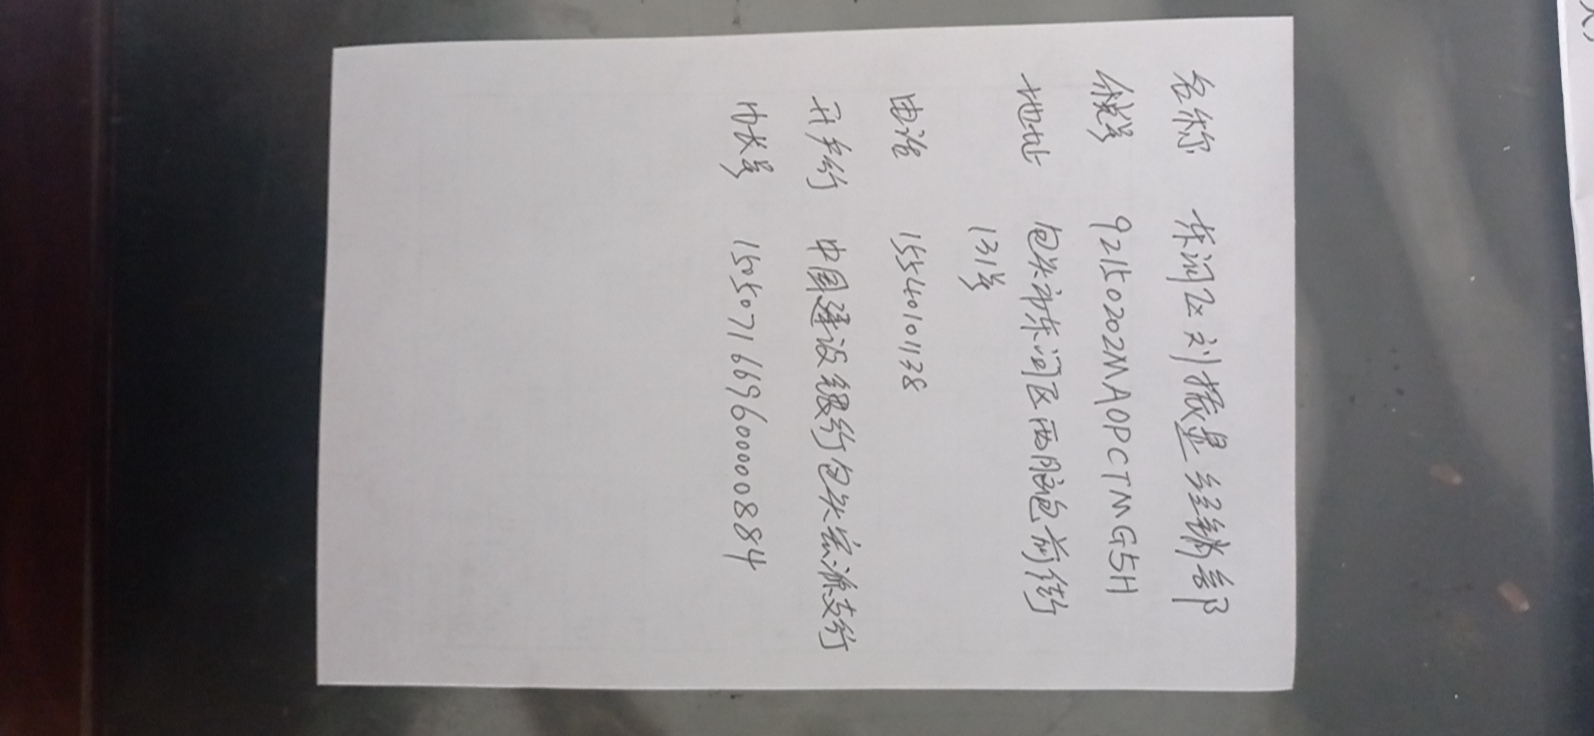 名称 东河区刘振显经销部
税号 92150202MA0PCTMG5H
地址 包头市东河区西脑包前街
131号
电话 15540101138
开户行 中国建设银行包头宏源支行
帐号 15050716696000000884